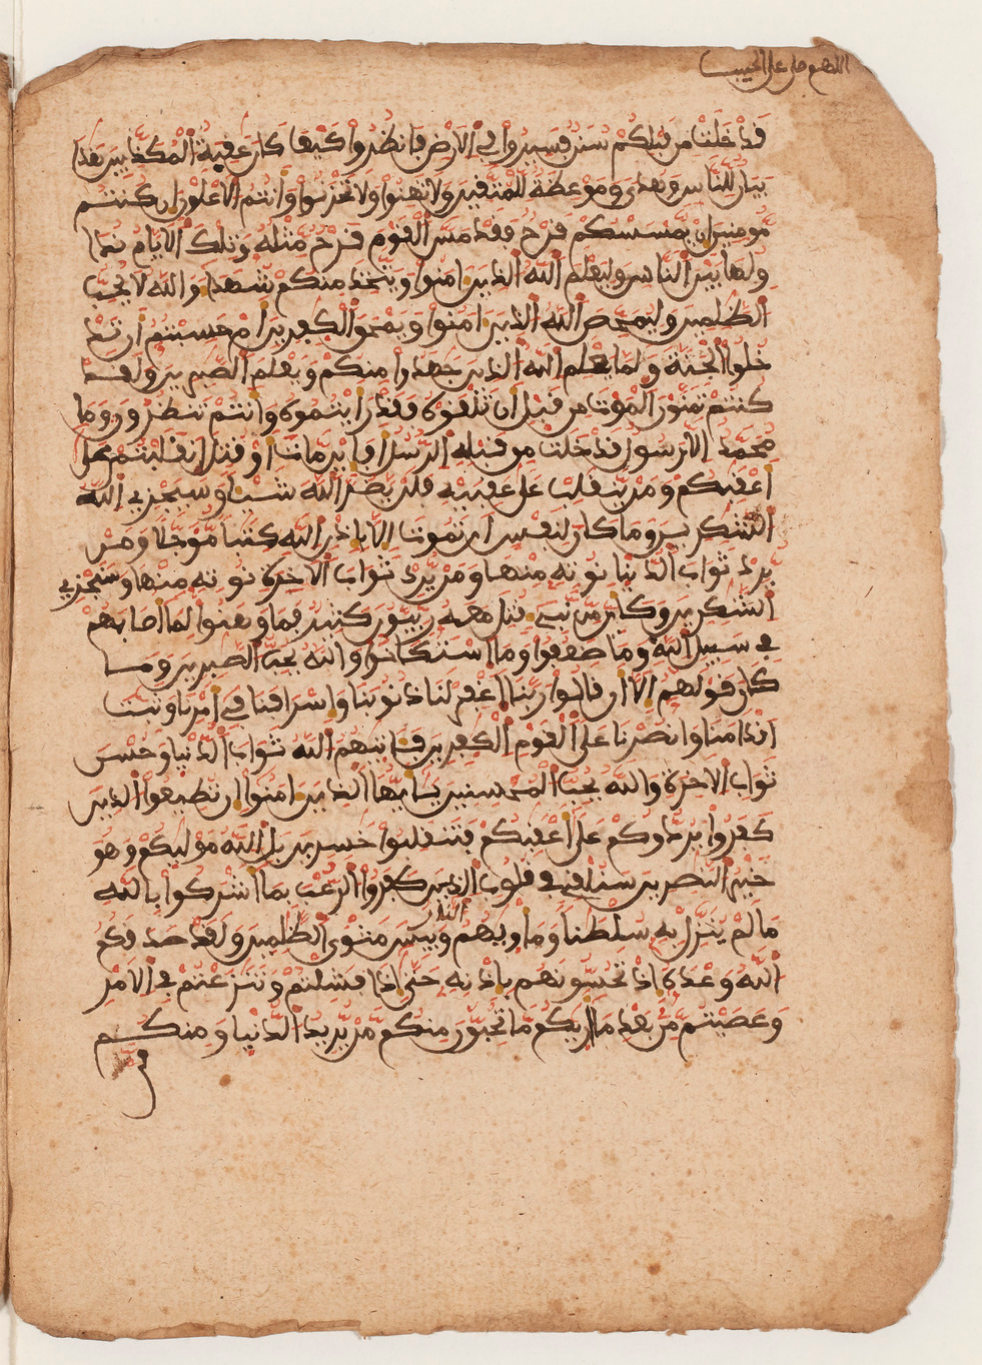 اللهم صل على الحبيب
قَدْ خَلَتْ مِن قَبْلِكُمْ سُنَنٌ فَسِيرُواْ فِي الاَرْضِ فَانظُرُواْ كَيْفَ كَانَ عَٰقِبَةُ الْمُكَذِّبِينَ هَٰذَا
بَيَانٌ لِّلنَّاسِ وَهُدىً وَمَوْعِظَةٌ لِّلْمُتَّقِينَ وَلَا تَهِنُواْ وَلَا تَحْزَنُواْ وَأَنتُمُ الَاعْلَوْنَ إِن كُنتُم
مُّومِنِينَ إِنْ يَّمْسَسْكُمْ قَرْحٌ فَقَدْ مَسَّ الْقَوْمَ قَرْحٌ مِّثْلُهُ وَتِلْكَ الَايَّامُ نُدَا
وِلُهَا بَيْنَ النَّاسِ وَلِيَعْلَمَ اللَّهُ الذِينَ ءَامَنُواْ وَيَتَّخِذَ مِنكُمْ شُهَدَاءَ وَاللَّهُ لَا يُحِبُّ
الظَّٰلِمِينَ وَلِيُمَحِّصَ اللَّهُ الذِينَ ءَامَنُواْ وَيَمْحَقَ الْكَٰفِرِينَ أَمْ حَسِبْتُمُ أَن تَدْ
خُلُواْ الْجَنَّةَ وَلَمَّا يَعْلَمِ اللَّهُ الذِينَ جَٰهَدُواْ مِنكُمْ وَيَعْلَمَ الصَّٰبِرِينَ وَلَقَدْ
كُنتُمْ تَمَنَّوْنَ الْمَوْتَ مِن قَبْلِ أَن تَلْقَوْهُ فَقَدْ رَأَيْتُمُوهُ وَأَنتُمْ تَنظُرُونَ وَمَا
مُحَمَّدٌ الَّا رَسُولٌ قَدْ خَلَتْ مِن قَبْلِهِ الرُّسُلُ أَفَإِيْن مَّاتَ أَوْ قُتِلَ انقَلَبْتُمْ عَلَىٰ
أَعْقَٰبِكُمْ وَمَنْ يَّنقَلِبْ عَلَىٰ عَقِبَيْهِ فَلَنْ يَّضُرَّ اللَّهَ شَيْئاً وَسَيَجْزِي اللَّهُ
الشَّٰكِرِينَ وَمَا كَانَ لِنَفْسٍ أَن تَمُوتَ إِلَّا بِإِذْنِ اللَّهِ كِتَٰباً مُّؤَجَّلًا وَمَنْ
يُّرِدْ ثَوَابَ الدُّنْيَا نُوتِهِ مِنْهَا وَمَنْ يُّرِدْ ثَوَابَ الَاخِرَةِ نُوتِهِ مِنْهَا وَسَنَجْزِي
الشَّٰكِرِينَ وَكَأَيِّن مِّن نَّبِيٓءٍ قُتِلَ مَعَهُ رِبِّيُّونَ كَثِيرٌ فَمَا وَهَنُواْ لِمَا أَصَابَهُمْ
فِي سَبِيلِ اللَّهِ وَمَا ضَعُفُواْ وَمَا اسْتَكَانُواْ وَاللَّهُ يُحِبُّ الصَّٰبِرِينَ وَمَا
كَانَ قَوْلَهُمُ إِلَّا أَن قَالُواْ رَبَّنَا اغْفِرْ لَنَا ذُنُوبَنَا وَإِسْرَافَنَا فِي أَمْرِنَا وَثَبِّتَ
اَقْدَامَنَا وَانصُرْنَا عَلَى الْقَوْمِ الْكَٰفِرِينَ فَـَٔاتَىٰهُمُ اللَّهُ ثَوَابَ الدُّنْيَا وَحُسْنَ
ثَوَابِ الَاخِرَةِ وَاللَّهُ يُحِبُّ الْمُحْسِنِينَ يَٰأَيُّهَا الذِينَ ءَامَنُواْ إِن تُطِيعُواْ الذِينَ
كَفَرُواْ يَرُدُّوكُمْ عَلَىٰ أَعْقَٰبِكُمْ فَتَنقَلِبُواْ خَٰسِرِينَ بَلِ اللَّهُ مَوْلَىٰكُمْ وَهُوَ
خَيْرُ النَّٰصِرِينَ سَنُلْقِي فِي قُلُوبِ الذِينَ كَفَرُواْ الرُّعْبَ بِمَا أَشْرَكُواْ بِاللَّهِ
مَا لَمْ يُنَزِّلْ بِهِ سُلْطَٰناً وَمَأْوَىٰهُمُ النَّارُ وَبِيسَ مَثْوَى الظَّٰلِمِينَ وَلَقَدْ صَدَقَكُمُ
اللَّهُ وَعْدَهُ إِذْ تَحُسُّونَهُم بِإِذْنِهِ حَتَّىٰ إِذَا فَشِلْتُمْ وَتَنَٰزَعْتُمْ فِي الَامْرِ
وَعَصَيْتُم مِّن بَعْدِ مَا أَرَىٰكُم مَّا تُحِبُّونَ مِنكُم مَّنْ يُّرِيدُ الدُّنْيَا وَمِنكُم